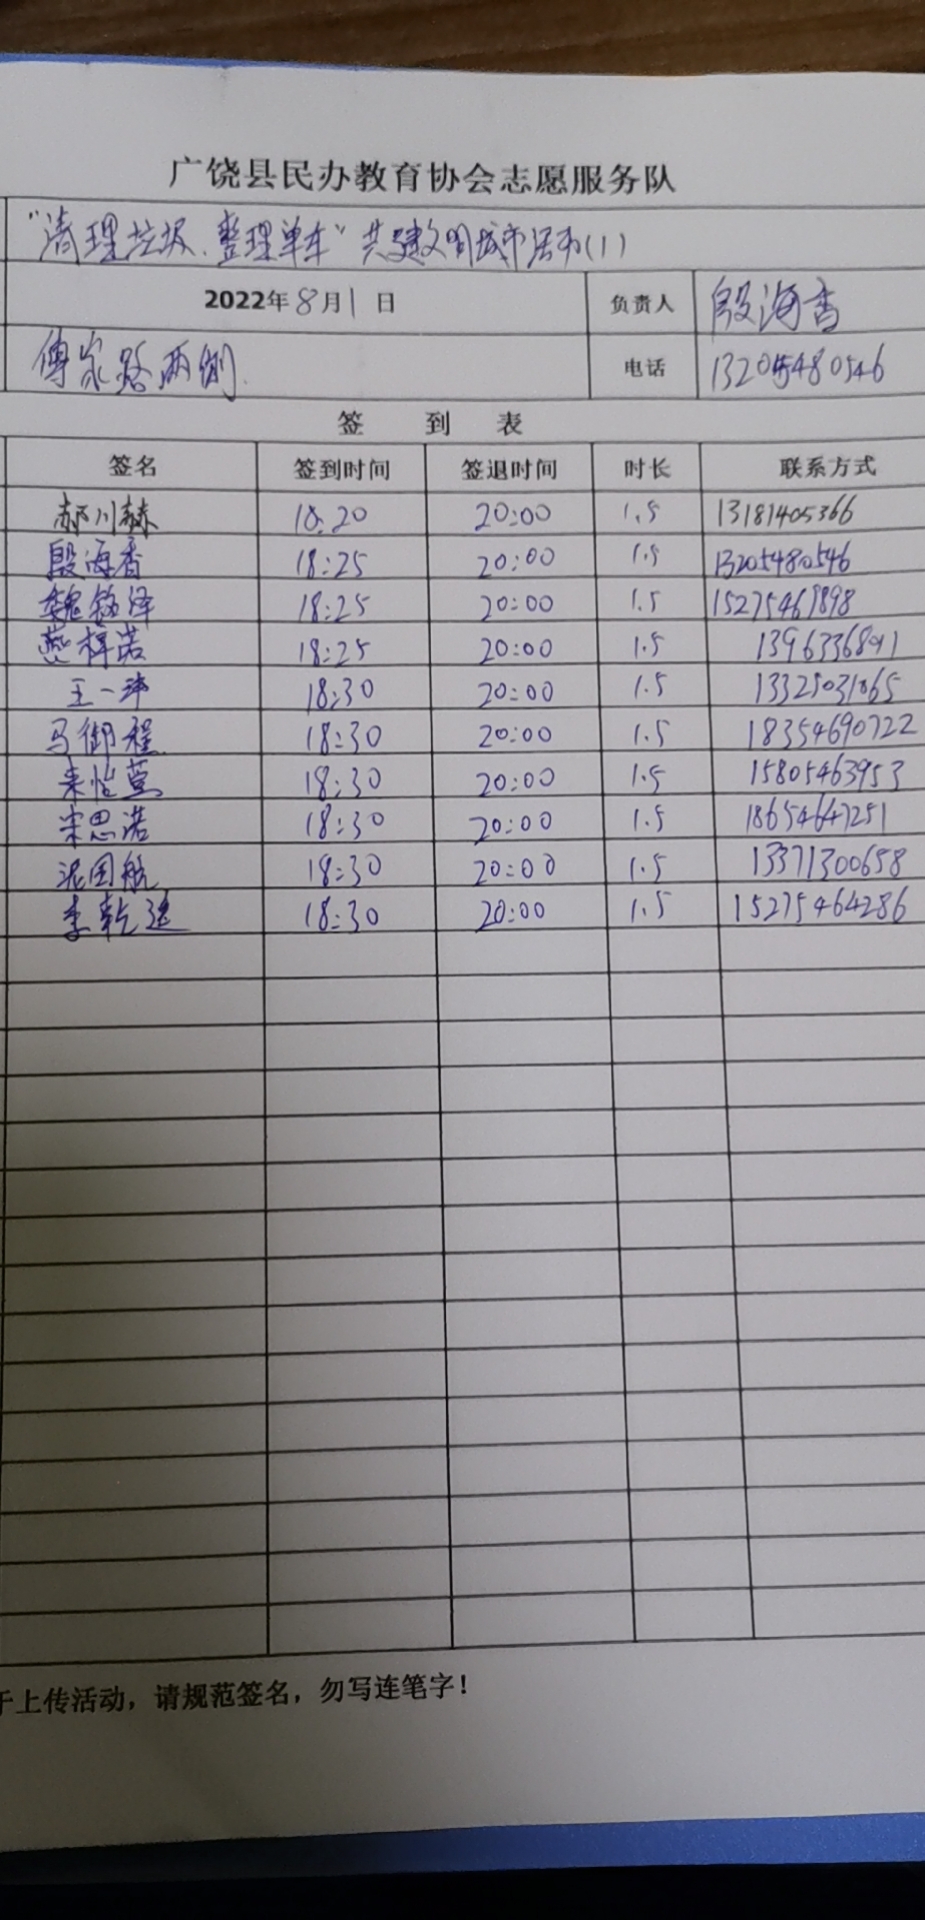 广饶县民办教育协会志愿服务队
"清理垃圾、整理单车"共建文明城市活动(1)
2022年8月1日 负责人 殷海香
傅家路两侧. 电话 13205480546
签 到 表
签名 签到时间 签退时间 时长 联系方式
郝川赫 18:20 20:00 1.5 13181405366
殷海香 18:25 20:00 1.5 13205480546
魏铭泽 18:25 20:00 1.5 15275467898
燕梓诺 18:25 20:00 1.5
王一 18:30 20:00 1.5
马御程 18:30 20:00 1.5 18354690722
来怡萱 18:30 20:00 1.5 15805463953
宋思诺 18:30 20:00 1.5 18654647251
泥国航 18:30 20:00 1.5 13371300658
李乾 18:30 20:00 1.5 15275464286
于上传活动，请规范签名，勿写连笔字！